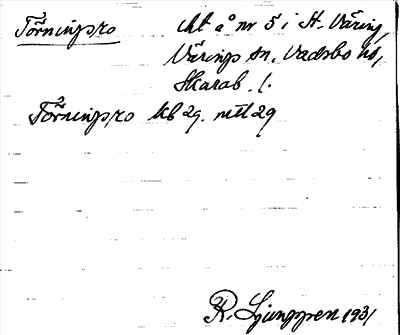 Törningsro ckt å nr 5 i St. Väring,
Värings sn, Vadsbo hd,
Skarab. l.
Törningsro kb 29. mtl 29
R. Ljunggren 1931